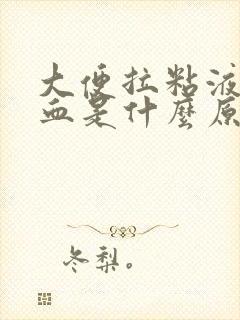 大便拉粘液
血是什麼原
冬梨。